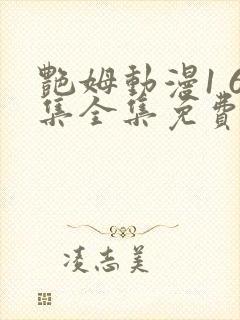 艷姆動漫1 6
集全集免費
凌志美